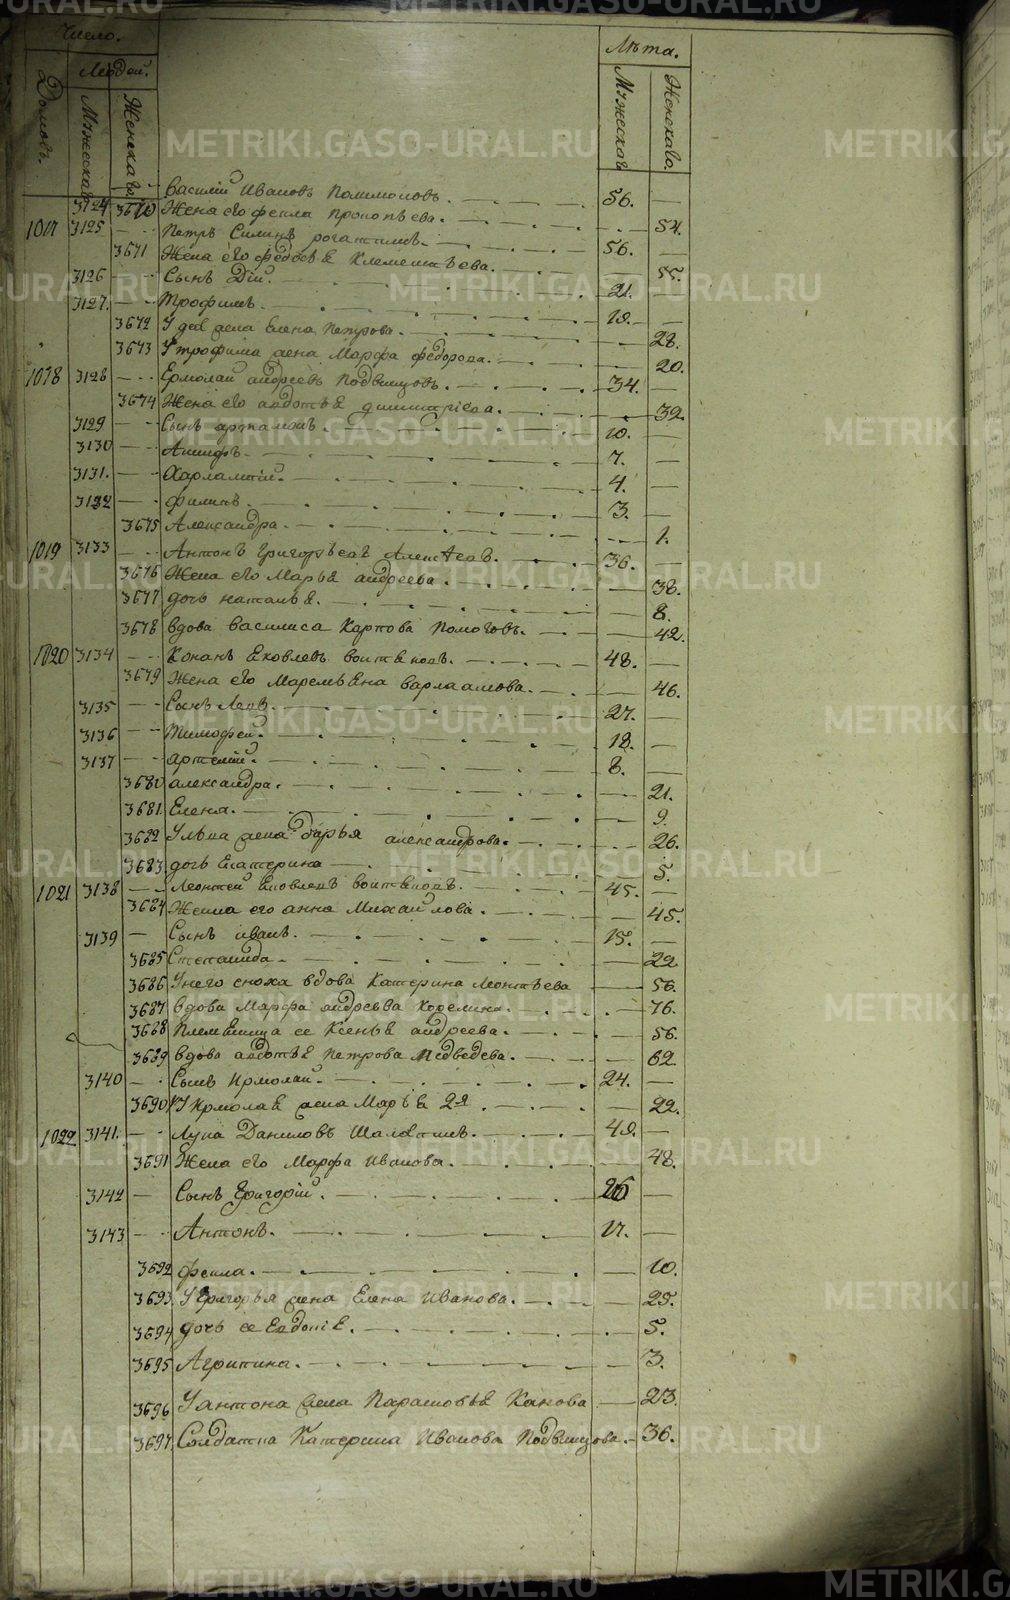 Число.
Людей.
Лѣта.
Домовъ.
Мужеска
Женскаго
Мужеска
Женскаго.
3124 Василий Ивановъ 56.
3670 Жена его Фекла Прокопьева. 54.
1017 3125 Петръ Силинъ рогаткинъ. 56.
3671 Жена его Федосья Клементьева. 55.
3126 Сынъ Дій. 21.
3127. Трофимъ. 19.
3672 У дея жена Елена Петрова. 28.
3673 У трофима жена Марфа федорова. 20.
1018 3128 Ермолаи андреевъ Подвинцовъ. 34.
3674 Жена его авдотья димитріева. 32.
3129 Сынъ артамонъ. 10.
3130 7.
3131. Харлампій. 4.
3132 филипъ. 3.
3675 Александра. 1.
1019 3133 Антонъ григорьевъ Алексѣевъ. 36.
3676 Жена его Марья андреева. 38.
3677 дочь наталья. 8.
3678 вдова василиса Карпова 42.
1020 3134 Конанъ Яковлевъ воитяковъ. 48.
3679 Жена его Маремьяна варлаамова. 46.
3135 Сынъ Левъ. 27.
3136 Тимофей. 18.
3137 артемій. 8.
3680 александра. 21.
3681. Елена. 9.
3682 У льва жена дарья александрова. 26.
3683. дочь Екатерина 5.
1021 3138 Леонтей Яковлевъ воитяковъ. 45.
3684 Женна его анна Михайлова. 45.
3139 Сынъ иванъ. 15.
3685 Степанида 22
3686 Унего сноха вдова Катерина Леонтьева 56.
3687 вдова Марфа андреева Корелина. 76.
3688 Племянница ее Ксенья андреева. 56.
3689 вдова авдотья Петрова Медведева. 62.
3140 Сынъ Ярмолаи. 24.
3690 У Ярмолая жена Марья 2я 22.
1022 3141. Лука Даниловъ 49.
3691 Жена его Марфа Иванова. 48.
3142 Сынъ Григорій. 26
3143 Антонъ. 17.
3692 фекла. 10.
3693. У Григорья жена Елена Иванова. 25.
3694 дочь ее Евдокія. 5.
3695 Агрипина. 3.
3696 У антона жена Парасковья 23.
3697. Солдатка Катерина Иванова Подвинцова. 36.
METRIKI.GASO-URAL.RU